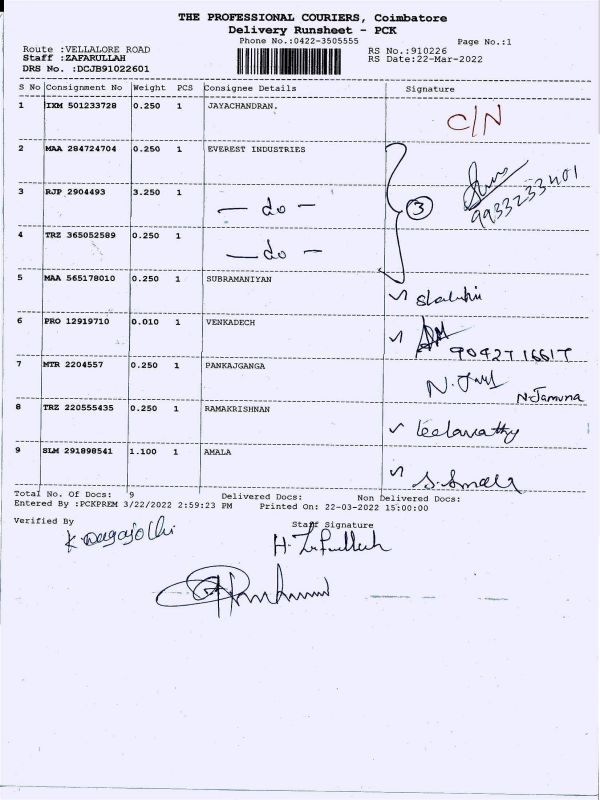 THE PROFESSIONAL COURIERS, Coimbatore
Delivery Runsheet - PCK
Phone No.:0422-3505555
Page No.:1
Route :VELLALORE ROAD
RS No.:910226
Staff :ZAFARULLAH
RS Date:22-Mar-2022
DRS No. :DCJB91022601
S No Consignment No Weight PCS Consignee Details Signature
1 IXM 501233728 0.250 1 JAYACHANDRAN. C/N
2 MAA 284724704 0.250 1 EVEREST INDUSTRIES
3 RJP 2904493 3.250 1 — do — 3 9933233401
4 TRZ 365052589 0.250 1 — do —
5 MAA 565178010 0.250 1 SUBRAMANIYAN
6 PRO 12919710 0.010 1 VENKADECH
9042716617
7 MTR 2204557 0.250 1 PANKAJGANGA
N.Jamuna
8 TRZ 220555435 0.250 1 RAMAKRISHNAN Leelavathy
9 SLM 291898541 1.100 1 AMALA
Total No. Of Docs: 9 Delivered Docs: Non Delivered Docs:
Entered By :PCKPREM 3/22/2022 2:59:23 PM Printed On: 22-03-2022 15:00:00
Verified By Staff Signature